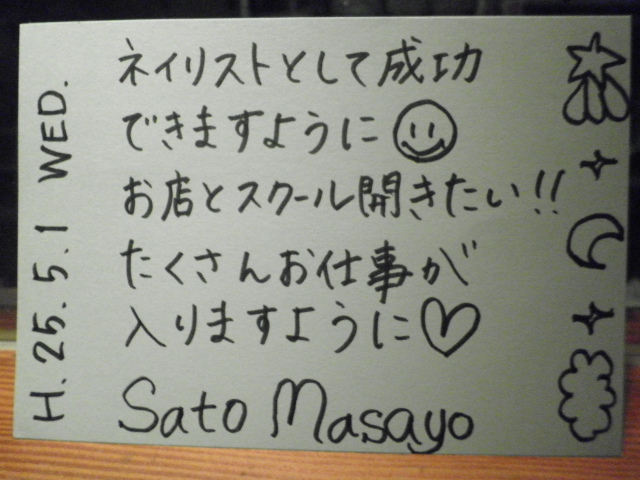 ネイリストとして成功
できますように
お店とスクール開きたい!!
たくさんお仕事が
入りますように♡
Sato Masayo
H.25.5.1 WED.